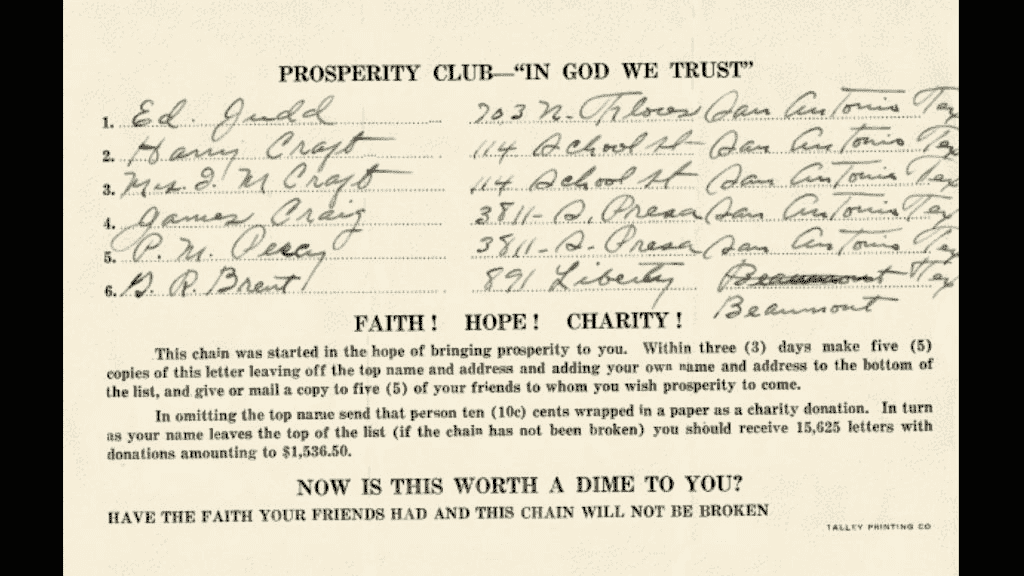 PROSPERITY CLUB—“IN GOD WE TRUST”
1. Ed. Judd 703 N. San Antonio Tex
2. Harry Craft 114 School st San Antonio Tex
3. Mrs. J. M Craft 114 School st San Antonio Tex
4. James Craig 3811- S. Presa San Antonio Tex
5. P. M. Percy 3811- S. Presa San Antonio Tex
6. D. R. Brent 891 Liberty Beaumont Tex
Beaumont
FAITH! HOPE! CHARITY!
This chain was started in the hope of bringing prosperity to you. Within three (3) days make five (5)
copies of this letter leaving off the top name and address and adding your own name and address to the bottom of
the list, and give or mail a copy to five (5) of your friends to whom you wish prosperity to come.
In omitting the top name send that person ten (10c) cents wrapped in a paper as a charity donation. In turn
as your name leaves the top of the list (if the chain has not been broken) you should receive 15,625 letters with
donations amounting to $1,536.50.
NOW IS THIS WORTH A DIME TO YOU?
HAVE THE FAITH YOUR FRIENDS HAD AND THIS CHAIN WILL NOT BE BROKEN
TALLEY PRINTING CO